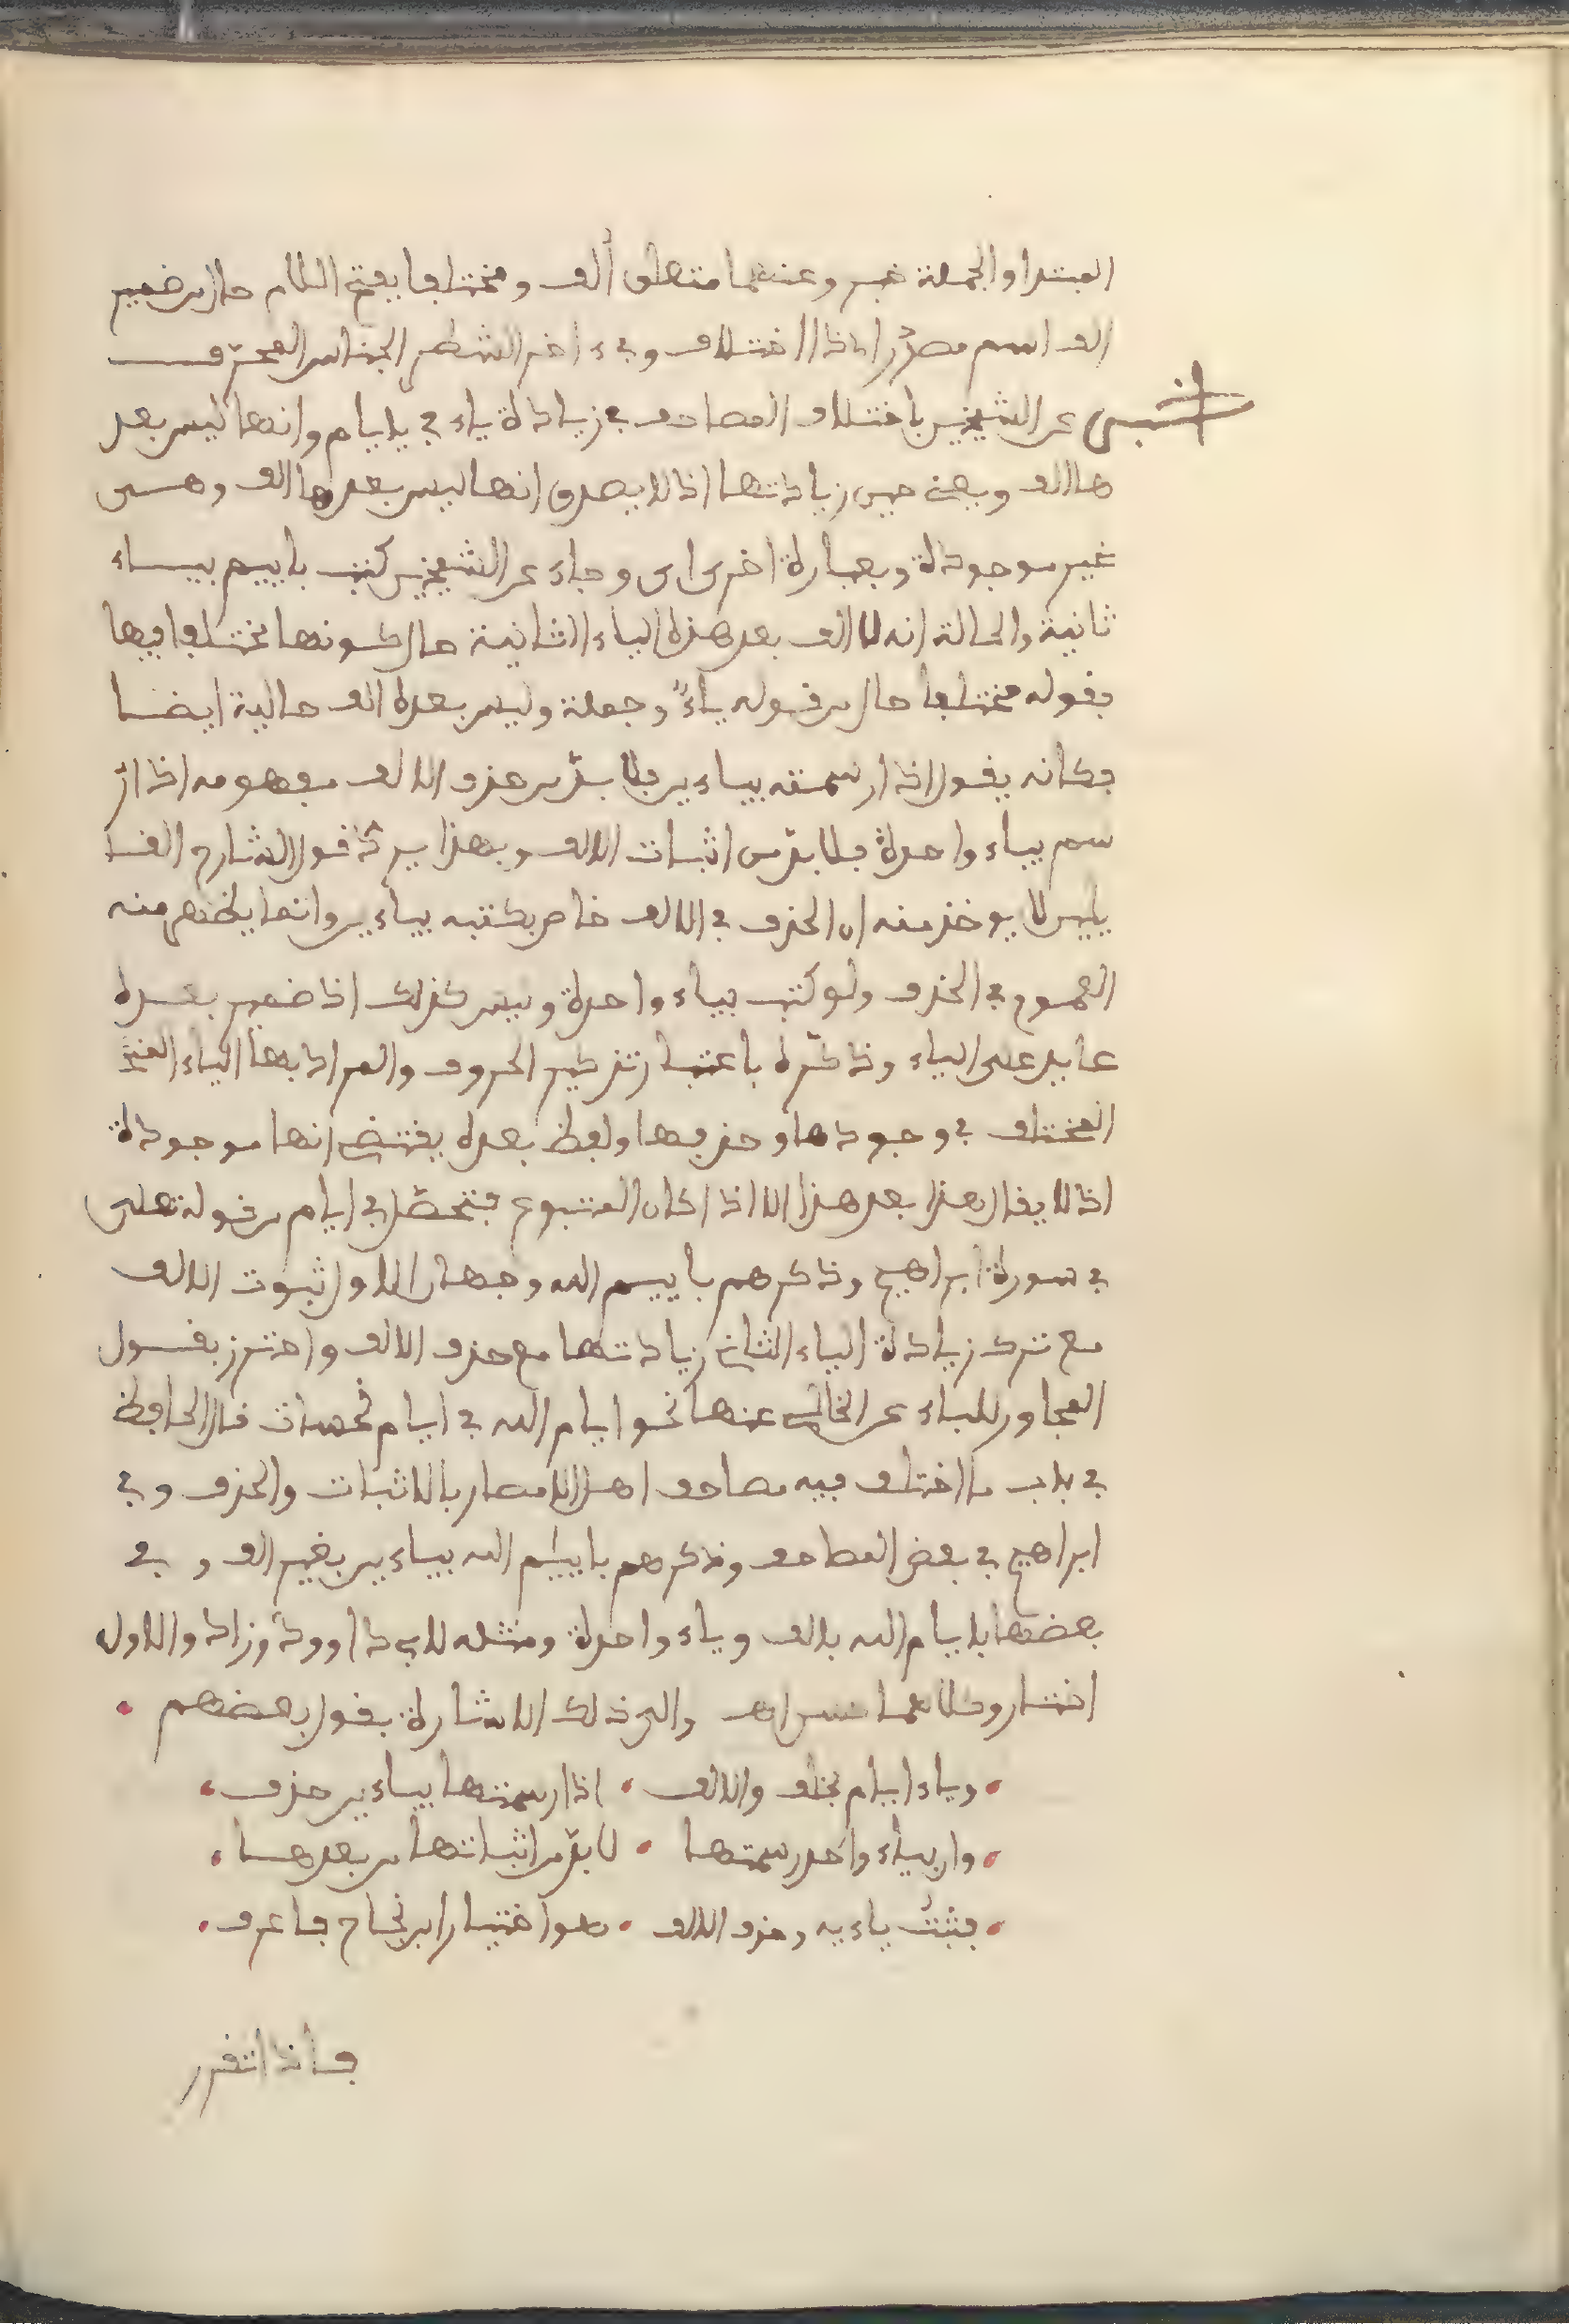 المبتدا والجملة خبر وعنهما متعلق ألف ومختلفا بفتح اللام حال من ضمير
الف اسم مصدر اي ذا اختلاف وفي ءاخر الشطر الجناس المحرف
اخبر عن الشيخين باختلاف المصاحف في زيادة ياء في باييام وانها ليس بعد
ها الف ويعني حين زيادتها اذ لا يصدق انها ليس بعدها الف وهي
غير موجودة وبعبارة اخرى اي وجاء عن الشيخين كتب باييم بياء
ثانية والحالة انه لا الف بعد هذه الياء الثانية حال كونها مختلفا فيها
فقوله مختلفا حال من قوله ياءً وجملة وليس بعده الف حالية ايضا
فكانه يقول اذا رسمته بياءين فلا بدّ من حذف الالف مفهومه اذا ر
سم بياء واحدة فلا بدّ من اثبات الالف وبهذا يردّ قول الشارح الفا
يلين لا يوخذ منه ان الحذف في الالف خاص بكتبه بياءين وانما يظهر منه
العموم في الحذف ولو كتب بياء واحدة وليس كذلك اذ ضمير بعده
عايد على الياء وذكّره باعتبار تذكير الحروف والمراد بها الياء
المختلف في وجودها وحذفها ولفظ بعده يقتضي انها موجودة
اذ لا يقال هذا بعد هذا الا اذا كان المتبوع فتحصّل في ايام من قوله تعلى
في سورة ابراهيم وذكرهم باييم الله وجهان الاول ثبوت الالف
مع ترك زيادة الياء الثاني زيادتها مع حذف الالف واحترز بقول
المجاور للباء عن الخالي عنها نحو ايام الله في ايام نحسات قال الحافظ
في باب ما اختلف فيه مصاحف اهل الامصار بالاثبات والحذف وفي
ابراهيم في بعض المصاحف وذكرهم باييم الله بياءين بغير الف وفي
بعضها بايام الله بالف وياء واحدة ومثله لابي داوود وزاد والاول
اختار وكلاهما حسن اهـ والى ذلك الاشارة بقول بعضهم •
• وياء ايام بخلف والالف • اذا رسمتها بياءين حذف •
• وان بياء واحد رسمتها • لا بدّ من اثباتها من بعدها •
• فثبت ياءيه وحذف الالف • هو اختيار ابن نجاح فاعرف •
فاذا تقرر